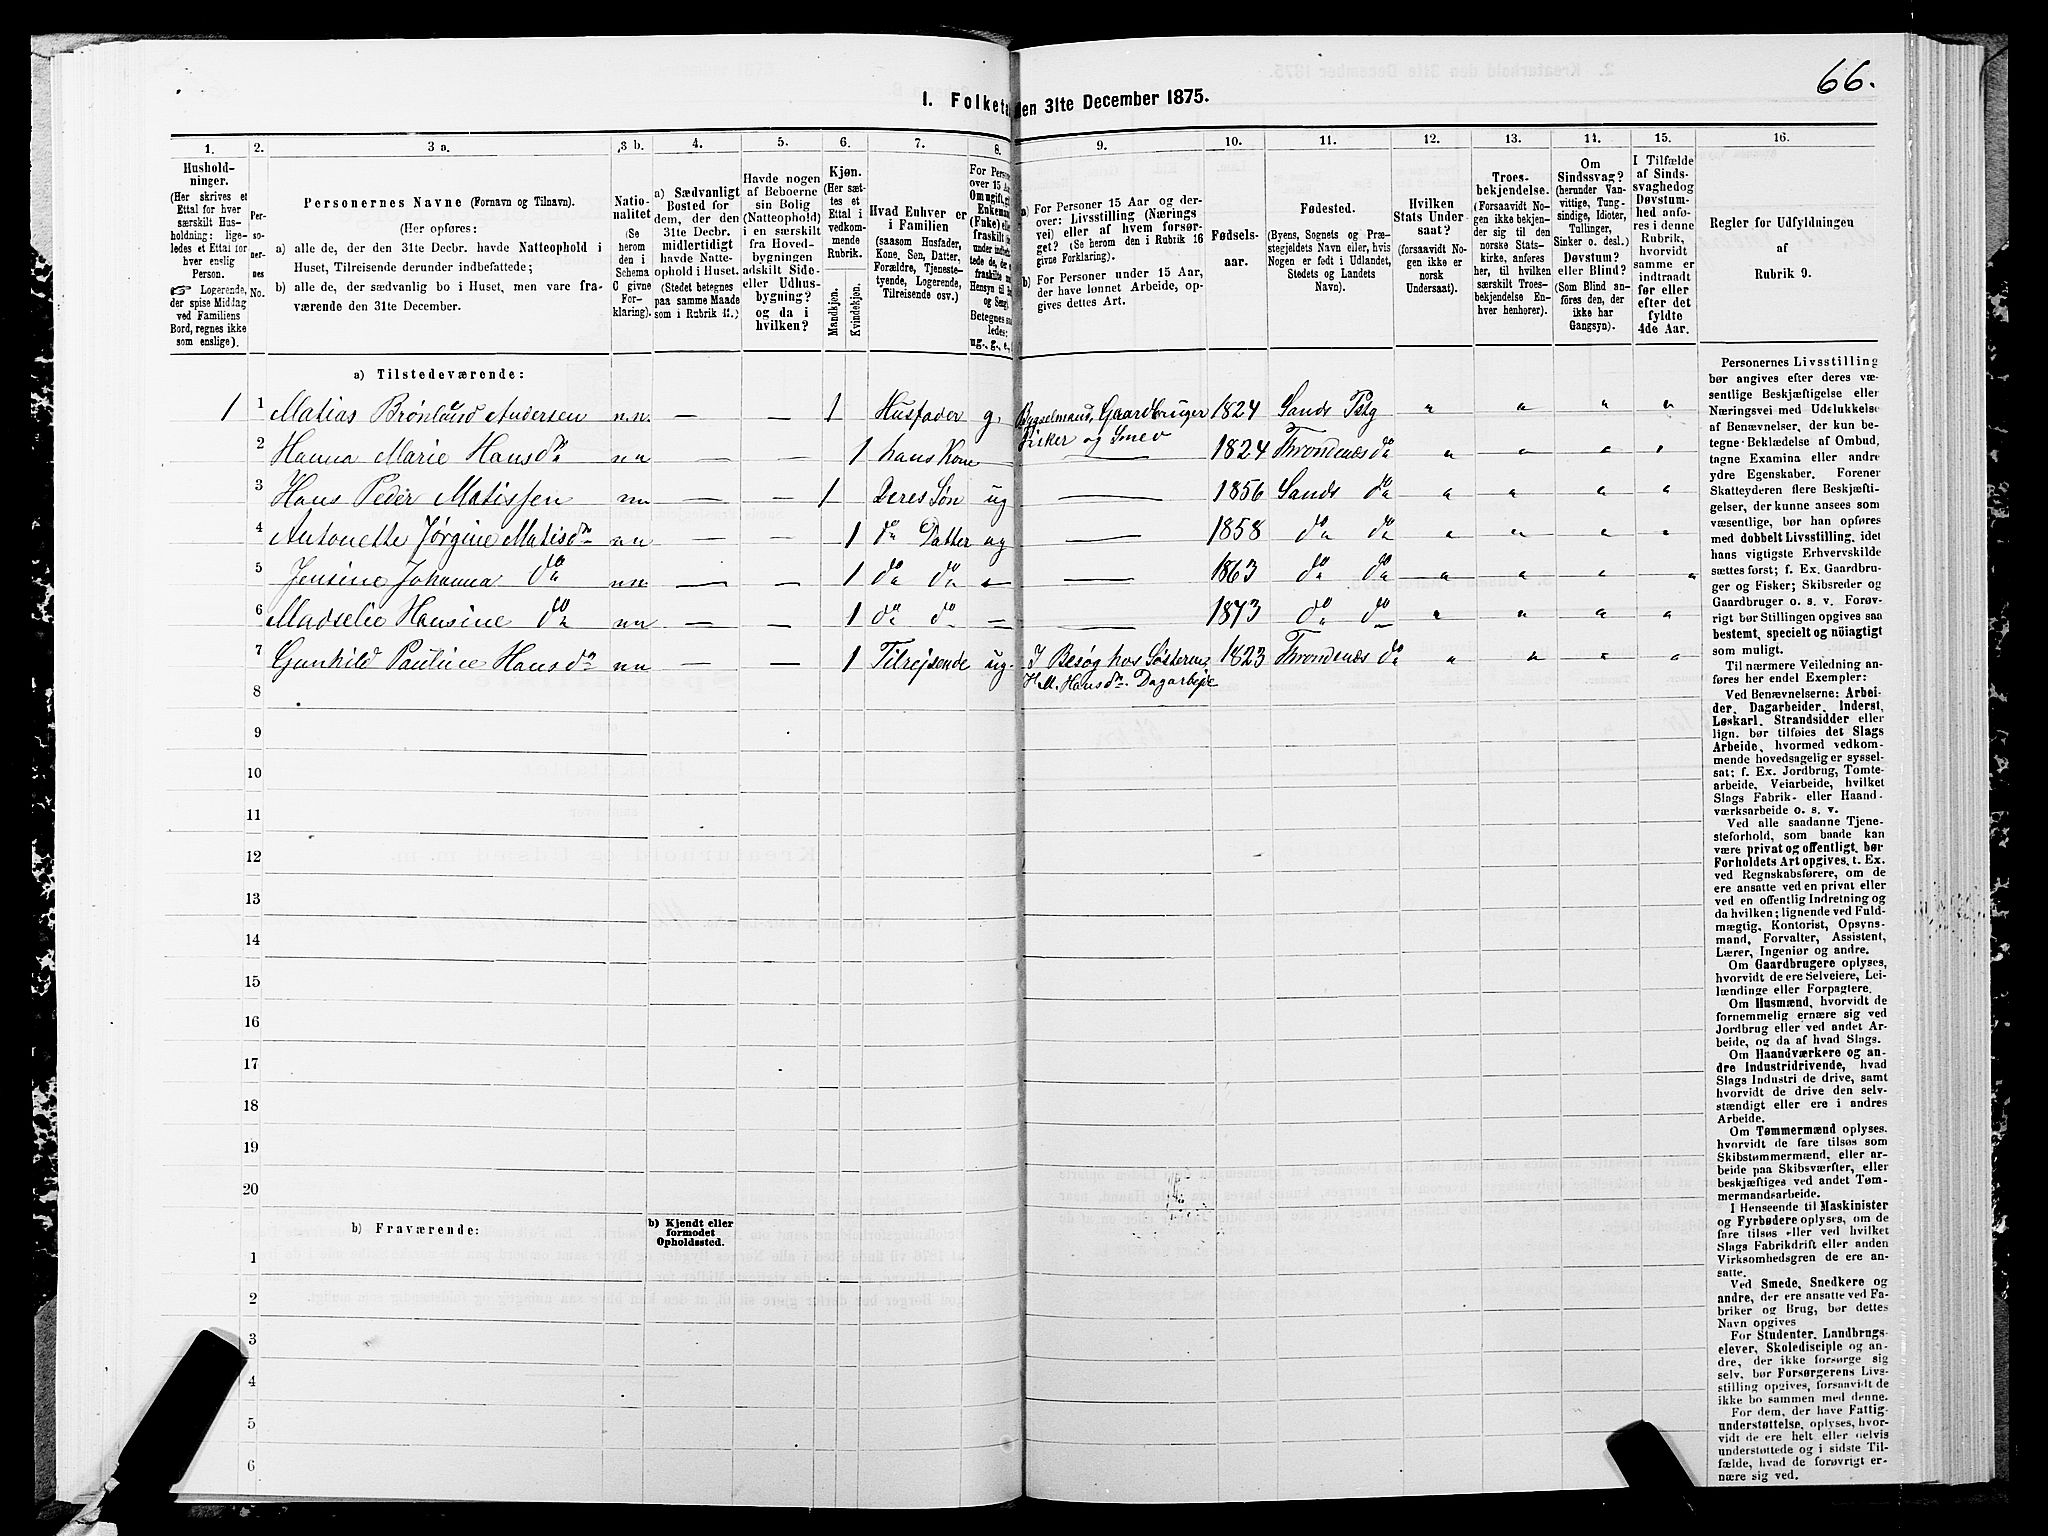 66.
1. Folketa
den 31te December 1875.
1. 2. 3 a. 3 b. 4. 5. 6. 7. 8. 9. 10. 11. 12. 13. 14. 15. 16.
Hushold-
ninger.
(Her skrives et
Ettal for hver
særskilt Hus-
holdning; lige-
ledes et Ettal for
hver enslig
Person.
☞ Logerende,
der spise Middag
ved Familiens
Bord, regnes ikke
som enslige).
Per-
so-
ner-
nes
No.
Personernes Navne (Fornavn og Tilnavn).
(Her opføres:
a) alle de, der den 31te Decbr. havde Natteophold i
Huset, Tilreisende derunder indbefattede;
b) alle de, der sædvanlig bo i Huset, men vare fra-
værende den 31te December.
Natio-
nalitet
(Se
herom
den i
Schema
C givne
For-
klaring).
a) Sædvanligt
Bosted for
dem, der den
31te Decbr.
midlertidigt
havde Natte-
ophold i Huset.
(Stedet betegnes
paa samme Maade
som i Rubrik 11.)
Havde nogen
af Beboerne
sin Bolig
(Natteophold)
i en særskilt
fra Hoved-
bygningen
adskilt Side-
eller Udhus-
bygning?
og da i
hvilken?
Kjøn.
(Her sæt-
tes et
Ettal i
vedkom-
mende
Rubrik.
Mandkjøn.
Kvindekjøn.
Hvad Enhver er
i Familien
(saasom Husfader,
Kone, Søn, Datter,
Forældre, Tjeneste-
tyende, Logerende,
Tilreisende osv.)
For Perso
over 15 Aar
Om ugift, gi
Enkeman
(Enke) elle
fraskilt
a) For Personer 15 Aar og der-
over: Livsstilling (Nærings
vei) eller af hvem forsør-
get? (Se herom den i Rubrik 16
givne Forklaring).
b) For Personer under 15 Aar,
der have lønnet Arbeide, op-
gives dettes Art.
Fødsels-
aar.
Fødested.
(Byens, Sognets og Præ-
stegjeldets Navn eller, hvis
Nogen er født i Udlandet,
Stedets og Landets
Navn).
Hvilken
Stats Under-
saat?
(forsaavidt No-
gen ikke er
norsk
Undersaat).
Troes-
bekjendelse.
(Forsaavidt No-
gen ikke bekjen-
der sig til den
norske Stats-
kirke, anføres
her, til hvilken
særskilt Troes-
bekjendelse En-
hver henhører).
Om
Sindssvag?
(herunder Van-
vittige, Tung-
sindige, Idioter,
Tullinger,
Sinker o. desl.)
Døvstum?
eller Blind?
(Som Blind an-
føres den, der
ikke har
Gangsyn).
I Tilfælde
af Sinds-
svaghed og
Døvstum-
hed anfø-
res i denne
Rubrik,
hvorvidt
samme er
indtraadt
før eller
efter det
fyldte
4de Aar.
Regler for Udfyldningen
af
Rubrik 9.
a) Tilstedeværende:
1 1 Matias Brönlund Andersen n.n. — — 1 Husfader g. Bygselmand, Gaardbruger 1824 Sands Pstg
Fisker og Smed
2 Hanna Marie Hansdr nn — — 1 hans Kone — 1824 Throndenæs do
3 Hans Peder Matissen nn — — 1 Deres Søn ug — 1856 Sands do
4 Antonette Jørgine Matisdr nn — — 1 do Datter ug — 1858 do do
5 Jensine Johanna do nn — — 1 do do — — 1863 do do
6 Madselie Hansine do nn — — 1 do do — — 1873 do do
7 Gunhild Pauline Hansdr nn — — 1 Tilrejsende ug. I Besøg hos Søsteren 1823 Throndenæs do
H. M. Hansdr. Dagarbejde
8
9
10
11
12
13
14
15
16
17
18
19
20
b) Fraværende:
b) Kjendt eller
formodet
Opholdssted.
1
2
3
4
5
6
Personernes Livsstilling
bør angives efter deres væ-
sentlige Beskjæftigelse eller
Næringsvei med Udelukkelse
af Benævnelser, der kun be-
tegne Beklædelse af Ombud,
tagne Examina eller andre
ydre Egenskaber. Forener
Skatteyderen flere Beskjæfti-
gelser, der kunne ansees som
væsentlige, bør han opføres
med dobbelt Livsstilling, idet
hans vigtigste Erhvervskilde
sættes først; f. Ex. Gaardbru-
ger og Fisker; Skibsreder og
Gaardbruger o. s. v. Forøv-
rigt bør Stillingen opgives saa
bestemt, specielt og nøiagtigt
som muligt.
Til nærmere Veiledning an-
føres her endel Exempler:
Ved Benævnelserne: Arbei-
der, Dagarbeider, Inderst,
Løskarl, Strandsidder eller
lign. bør tilføies det Slags
Arbeide, hvormed vedkom-
mende hovedsagelig er syssel-
sat; f. Ex. Jordbrug, Tomte-
arbeide, Veiarbeide, hvilket
Slags Fabrik- eller Haand-
værksarbeide o. s. v.
Ved alle saadanne Tjene-
steforhold, som baade kan
være privat og offentligt, bør
Forholdets Art opgives, t. Ex.
ved Regnskabsførere, om de
ere ansatte ved en privat eller
ved en offentlig Indretning og
da hvilken; lignende ved Fuld-
mægtig, Kontorist, Opsyns-
mand, Forvalter, Assistent,
Lærer, Ingeniør og andre.
Om Gaardbrugere oplyses,
hvorvidt de ere Selveiere, Lei-
lændinge eller Forpagtere.
Om Husmænd, hvorvidt de
fornemmelig ernære sig ved
Jordbrug eller ved andet Ar-
beide, og da af hvad Slags.
Om Haandværkere og an-
dre Industridrivende, hvad
Slags Industri de drive, samt
hvorvidt de drive den selv-
stændigt eller ere i andres
Arbeide.
Om Tømmermænd oplyses,
hvorvidt de fare tilsøs som
Skibstømmermænd, eller ar-
beide paa Skibsværfter, eller
beskjæftiges ved andet Tøm-
mermandsarbeide.
I Henseende til Maskinister
og Fyrbødere oplyses, om de
fare tilsøs eller ved hvilket
Slags Fabrikdrift eller anden
Virksomhedsgren de ere an-
satte.
Ved Smede, Snedkere og
andre, der ere ansatte ved Fa-
briker og Brug, bør dettes
Navn opgives
For Studenter, Landbrugs-
elever, Skoledisciple og an-
dre, der ikke forsørge sig
selv, bør Forsørgerens Livs-
stilling opgives, forsaavidt de
ikke bo sammen med denne.
For dem, der have Fattig-
understøttelse, oplyses, hvor-
vidt de ere helt eller delvis
understøttede og i sidste Til-
fælde, hvad de forøvrigt er-
nære sig ved.